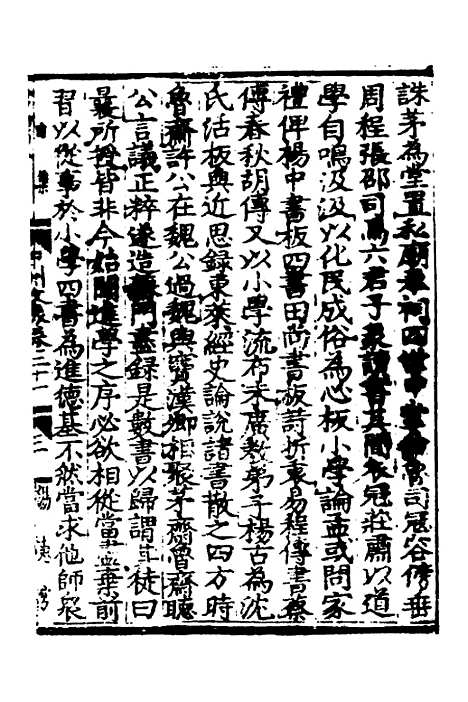 誅茅為堂置私廟奉祠四世中堂龕魯司寇容傍垂
周程張邵司馬六君子象讀書其間衣冠莊肅以道
學自鳴汲汲以化民成俗為心板小學論孟或問家
禮俾楊中書板四書田尚書板詩折衷易程傳書蔡
傳春秋胡傳又以小學流布未廣教弟子楊古為沈
氏活板與近思錄東萊經史論說諸書散之四方時
魯齋許公在魏公過魏與竇漢卿相聚茅齋魯齋聽
公言議正粹遂造蘇門盡錄是數書以歸謂其徒曰
曩所授皆非今始聞進學之序必欲相從當盡棄前
習以從事於小學四書為進德基不然當求他師眾
中州文表卷二十一